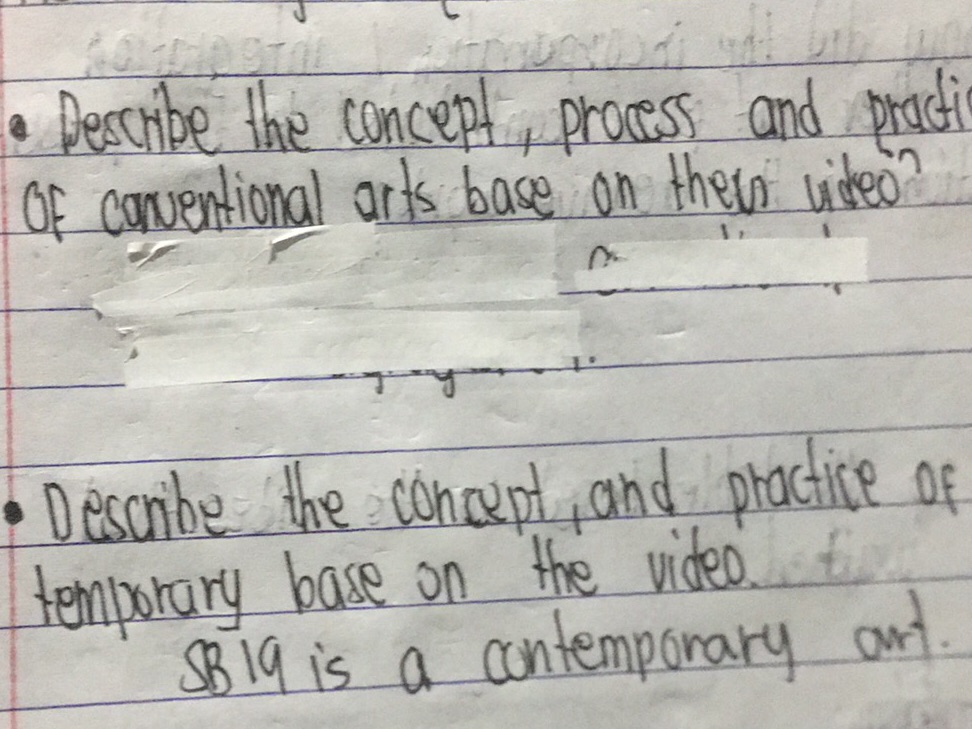 • Describe the concept, process and practic
of conventional arts base on their video?
• Describe the concept, and practice of
temporary base on the video.
SB19 is a contemporary art.